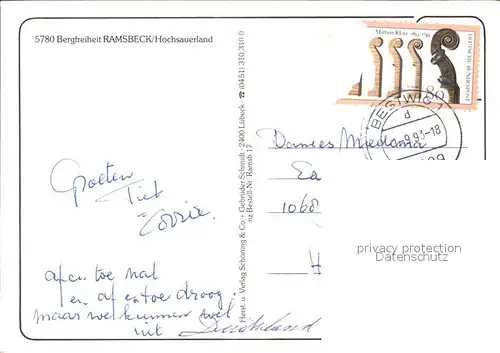 5780 Bergfreiheit RAMSBECK/Hochsauerland
Mathias Klotz · 1653-1743
DEUTSCHE BUNDESPOST
80
BESTWIG
d
9.93-18
Groeten
Piet
Corrie.
af en toe nat
en af en toe droog.
maar we kunnen wel
uit Duitsland
Herst. u. Verlag Schöning & Co + Gebrüder Schmidt · 2400 Lübeck · ☎ (0451) 310 310 0
nz Bestell-Nr. Ramsb 17
Miedema
1068
H
privacy protection
Datenschutz